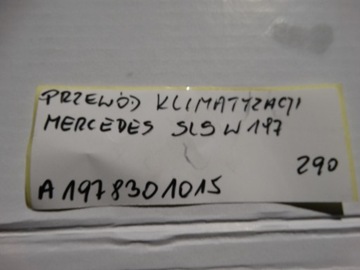 PRZEWÓD KLIMATYZACJI
MERCEDES SLS W197
290
A1978301015